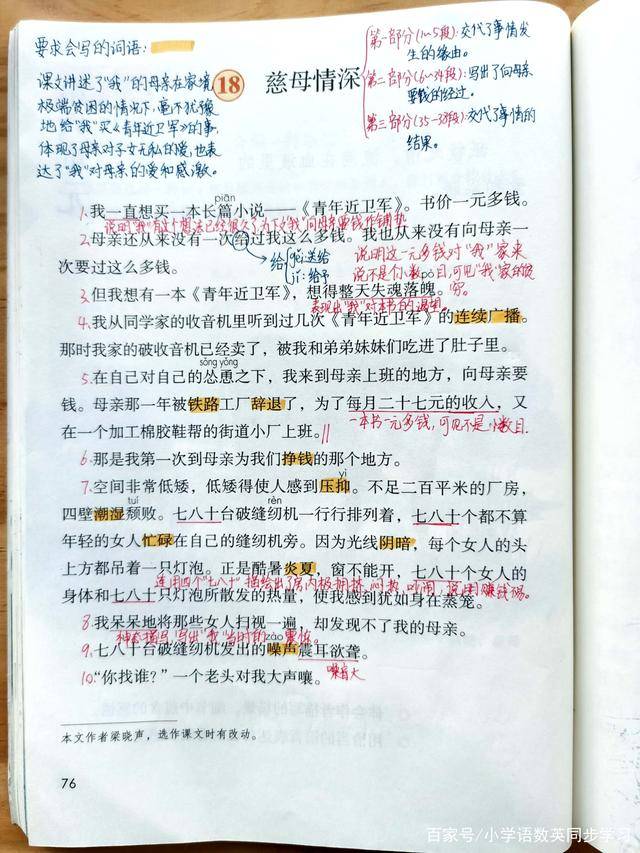 要求会写的词语：
课文讲述了“我”的母亲在家境
极端贫困的情况下，毫不犹豫
地给“我”买《青年近卫军》的事，
体现了母亲对子女无私的爱，也表
达了“我”对母亲的爱和感激。
18 慈母情深
第一部分(1~5段)：交代了事情发
生的缘由。
第二部分(6~34段)：写出了向母亲
要钱的经过。
第三部分(35~38段)：交代了事情的
结果。
piān
1.我一直想买一本长篇小说——《青年近卫军》。书价一元多钱。
说明“我”有这个想法已经很久了，为下文“我”向母亲要钱作铺垫
2.母亲还从来没有一次给过我这么多钱。我也从来没有向母亲一
次要过这么多钱。
给 gěi:送给
jǐ:给予
说明这一元多钱对“我”家来
说不是个小数目，可见“我”家的贫
穷。
pò
3.但我想有一本《青年近卫军》，想得整天失魂落魄。
表现出“我”对本书的渴望。
4.我从同学家的收音机里听到过几次《青年近卫军》的连续广播。
那时我家的破收音机已经卖了，被我和弟弟妹妹们吃进了肚子里。
sǒng yǒng
5.在自己对自己的怂恿之下，我来到母亲上班的地方，向母亲要
钱。母亲那一年被铁路工厂辞退了，为了每月二十七元的收入，又
在一个加工棉胶鞋帮的街道小厂上班。
一本书一元多钱，可见不是小数目.
6.那是我第一次到母亲为我们挣钱的那个地方。
yì
7.空间非常低矮，低矮得使人感到压抑。不足二百平米的厂房，
tuí rèn
四壁潮湿颓败。七八十台破缝纫机一行行排列着，七八十个都不算
年轻的女人忙碌在自己的缝纫机旁。因为光线阴暗，每个女人的头
上方都吊着一只灯泡。正是酷暑炎夏，窗不能开，七八十个女人的
连用四个“七八十”描绘出了房内极拥挤、闷热、吵闹，说明赚钱不易。
身体和七八十只灯泡所散发的热量，使我感到犹如身在蒸笼。
8.我呆呆地将那些女人扫视一遍，却发现不了我的母亲。
神态描写，写出“我”当时的震惊。
zào
9.七八十台破缝纫机发出的噪声震耳欲聋。
噪音大
10.“你找谁？”一个老头对我大声嚷。
本文作者梁晓声，选作课文时有改动。
76
百家号/小学语数英同步学习